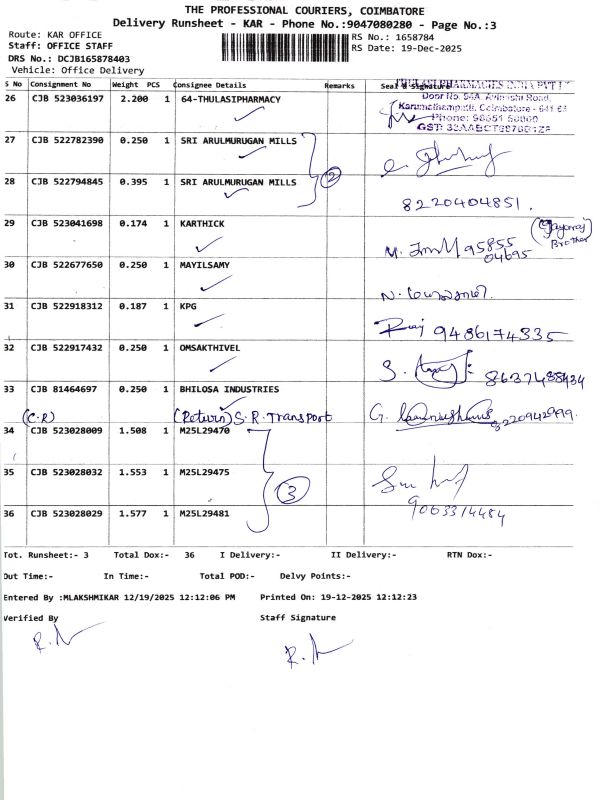 THE PROFESSIONAL COURIERS, COIMBATORE
Delivery Runsheet - KAR - Phone No.:9047080280 - Page No.:3
Route: KAR OFFICE
Staff: OFFICE STAFF
DRS No.: DCJB165878403
Vehicle: Office Delivery
RS No.: 1658784
RS Date: 19-Dec-2025
S No Consignment No Weight PCS Consignee Details Remarks Seal & Signature
26 CJB 523036197 2.200 1 64-THULASIPHARMACY
THULASI PHARMACIES INDIA PVT LTD
Door No. 94A, Avinashi Road,
Karumathampatti, Coimbatore - 641
Phone: 98651
27 CJB 522782390 0.250 1 SRI ARULMURUGAN MILLS
28 CJB 522794845 0.395 1 SRI ARULMURUGAN MILLS
2
8220404851.
29 CJB 523041698 0.174 1 KARTHICK
95855
04695
Brother
30 CJB 522677650 0.250 1 MAYILSAMY
31 CJB 522918312 0.187 1 KPG
9486174335
32 CJB 522917432 0.250 1 OMSAKTHIVEL
33 CJB 81464697 0.250 1 BHILOSA INDUSTRIES
(C.R) (Return) S.R. Transport
8220942999.
34 CJB 523028009 1.508 1 M25L29470
35 CJB 523028032 1.553 1 M25L29475
3
36 CJB 523028029 1.577 1 M25L29481
9063314484
Tot. Runsheet:- 3 Total Dox:- 36 I Delivery:- II Delivery:- RTN Dox:-
Out Time:- In Time:- Total POD:- Delvy Points:-
Entered By :MLAKSHMIKAR 12/19/2025 12:12:06 PM Printed On: 19-12-2025 12:12:23
Verified By Staff Signature